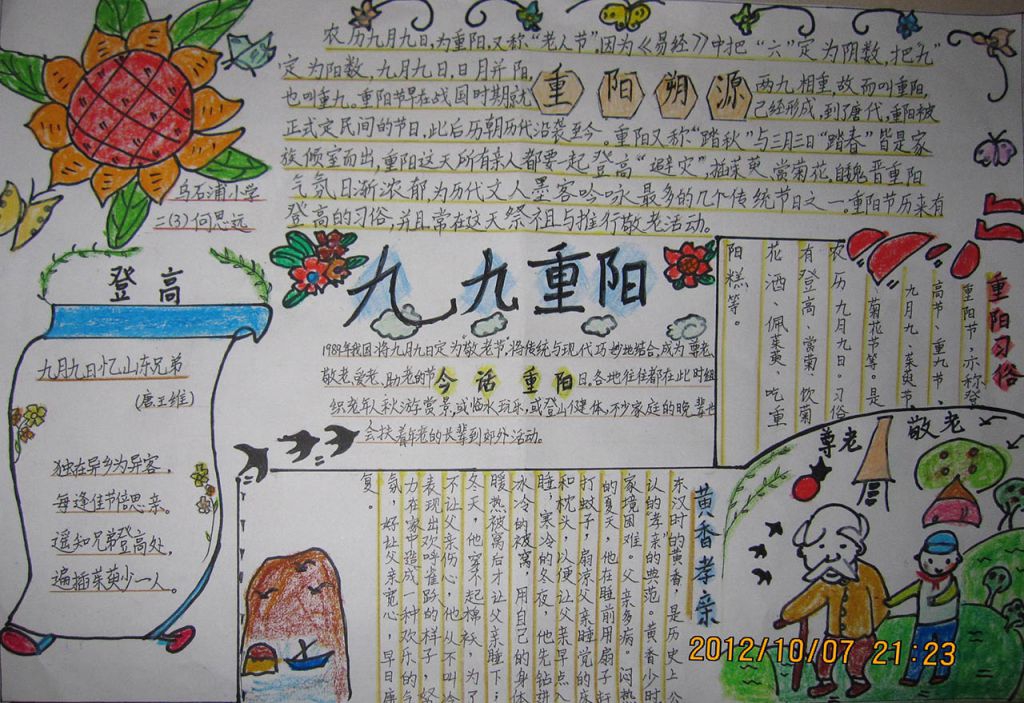 农历九月九日,为重阳,又称“老人节”因为《易经》中把“六”定为阴数,把“九”
定为阳数,九月九日,日月并阳,两九相重,故而叫重阳,
也叫重九。重阳节早在战国时期就已经形成,到了唐代,重阳被
正式定民间的节日,此后历朝历代沿袭至今。重阳又称“踏秋”与三月三日“踏春”皆是家
族倾室而出,重阳这天所有亲人都要一起登高“避灾”,插茱萸、赏菊花,自魏晋重阳
气氛日渐浓郁,为历代文人墨客吟咏最多的几个传统节日之一。重阳节历来有
登高的习俗,并且常在这天祭祖与推行敬老活动。
重阳朔源
乌石浦小学
二(3)何思远
登高
九月九日忆山东兄弟
(唐王维)
独在异乡为异客,
每逢佳节倍思亲。
遥知兄弟登高处,
遍插茱萸少一人。
九九重阳
1989年我国将九月九日定为敬老节,将传统与现代巧妙地结合,成为尊老、
敬老、爱老、助老的节日,各地往往都在此时组
织老年人秋游赏景,或临水玩乐,或登山健体,不少家庭的晚辈也
会扶着年老的长辈到郊外活动。
今话重阳
重阳习俗
重阳节,亦称登
高节、重九节、
九月九、茱萸节、
菊花节等。是
农历九月九日。习俗
有登高、赏菊、饮菊
花酒、佩茱萸、吃重
阳糕等。
黄香孝亲
东汉时的黄香,是历史上公
认的“孝亲”的典范。黄香少时
家境困难。父亲多病。闷热
的夏天,他在睡前用扇子赶
打蚊子,扇凉父亲睡觉的床
和枕头,以便让父亲早点入
睡,寒冷的冬夜,他先钻进
冰冷的被窝,用自己的身体
暖热被窝后才让父亲睡下;
冬天,他穿不起棉袄,为了
不让父亲伤心,他从不叫冷
表现出欢呼雀跃的样子,努
力在家中造成一种欢乐的气
氛,好让父亲宽心,早日康
复。
尊老 敬老
2012/10/07 21:23